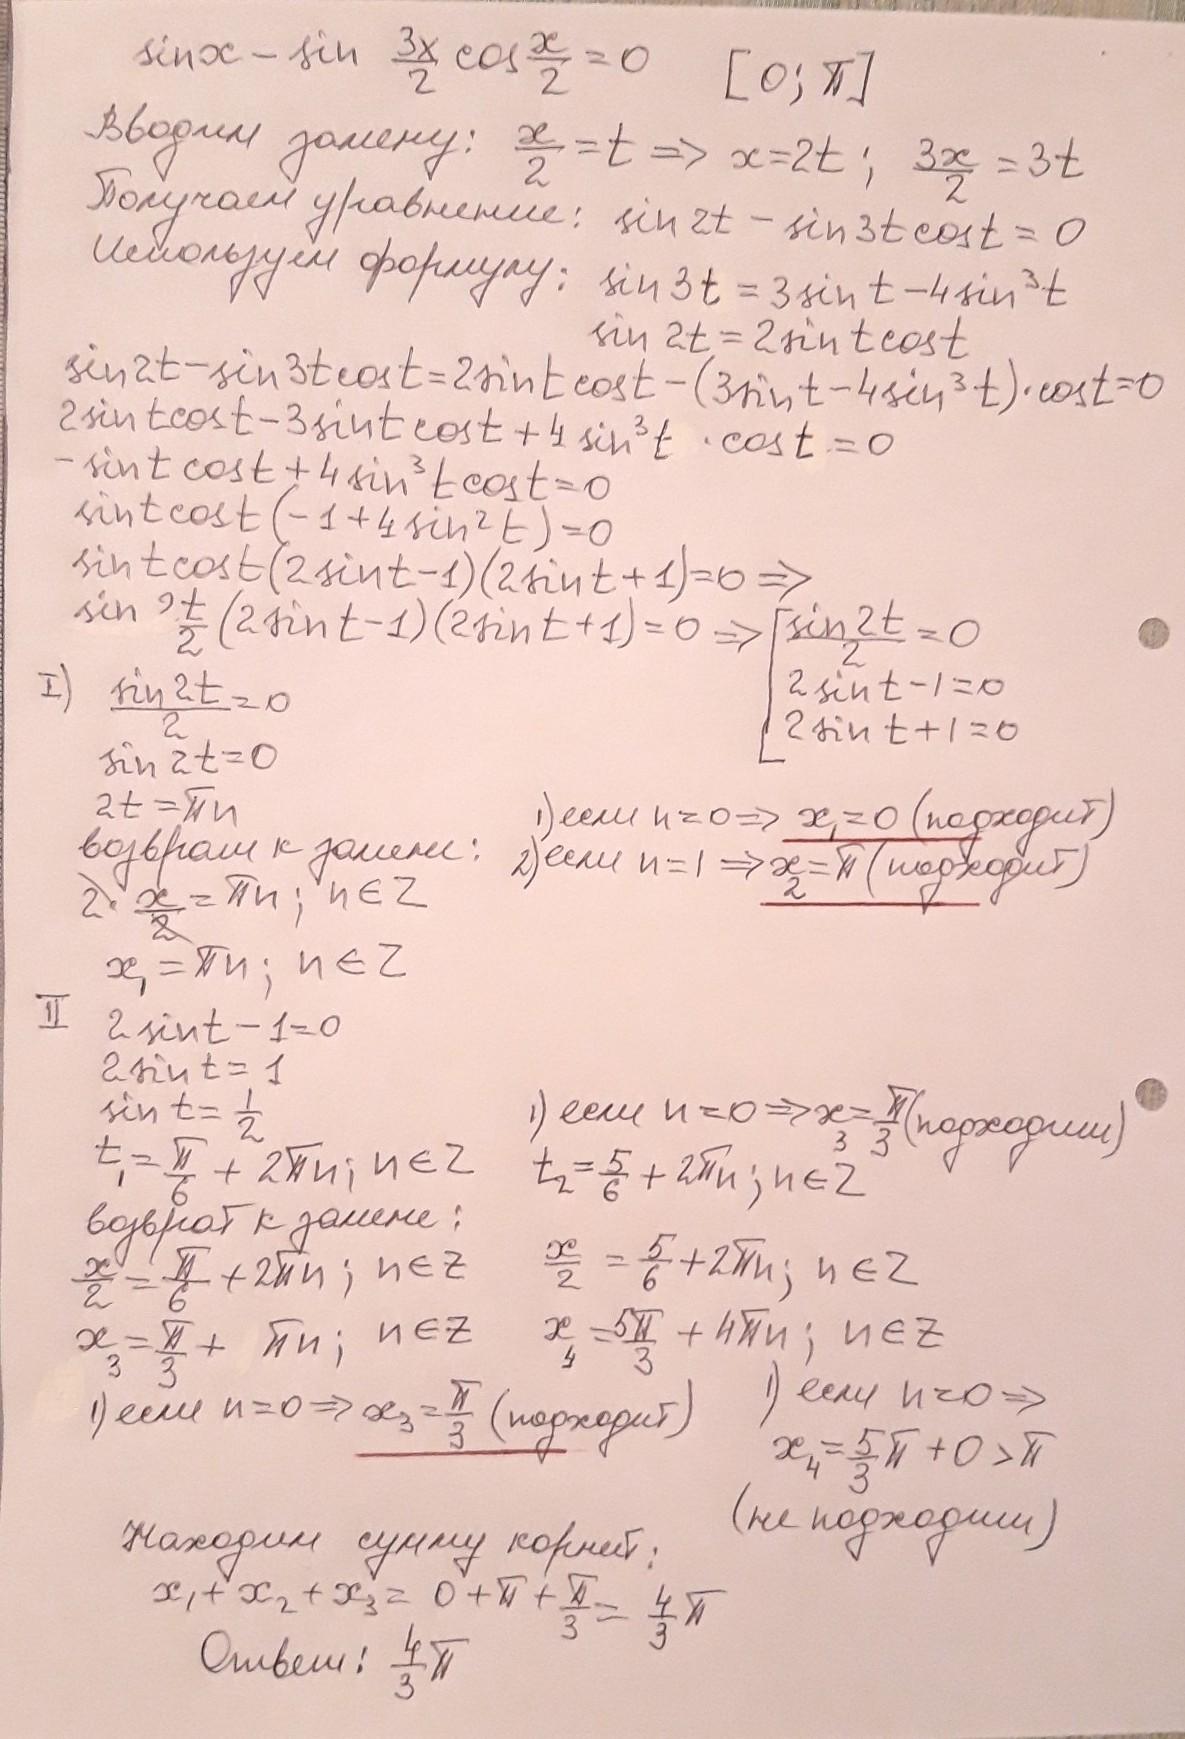 sinx - sin 3x/2 cos x/2 = 0 [0; π]
Вводим замену: x/2 = t => x = 2t ; 3x/2 = 3t
Получаем уравнение: sin 2t - sin3t cost = 0
Используем формулу: sin 3t = 3sin t - 4sin³t
sin 2t = 2sin t cost
sin2t - sin3t cost = 2sint cost - (3sin t - 4sin³t)·cost = 0
2sint cost - 3sint cost + 4 sin³t · cost = 0
- sint cost + 4sin³t cost = 0
sint cost (-1 + 4sin²t) = 0
sint cost (2sint - 1)(2sint + 1) = 0 =>
sin 2t/2 (2sint - 1)(2sint + 1) = 0 => [ sin2t/2 = 0
2sin t - 1 = 0
2sin t + 1 = 0
I) sin 2t/2 = 0
sin 2t = 0
2t = πn
1) если n = 0 => x₁ = 0 (подходит)
возврат к замене:
2) если n = 1 => x₂ = π (подходит)
2· x/2 = πn ; n ∈ Z
x₁ = πn ; n ∈ Z
II 2sint - 1 = 0
2sin t = 1
sin t = 1/2
1) если n = 0 => x₃ = π/3 (подходит)
t₁ = π/6 + 2πn ; n ∈ Z t₂ = 5/6 + 2πn ; n ∈ Z
возврат к замене:
x/2 = π/6 + 2πn ; n ∈ Z x/2 = 5/6 + 2πn ; n ∈ Z
x₃ = π/3 + πn ; n ∈ Z x₄ = 5π/3 + 4πn ; n ∈ Z
1) если n = 0 => x₃ = π/3 (подходит)
1) если n = 0 =>
x₄ = 5/3 π + 0 > π
(не подходит)
Находим сумму корней:
x₁ + x₂ + x₃ = 0 + π + π/3 = 4/3 π
Ответ: 4/3 π